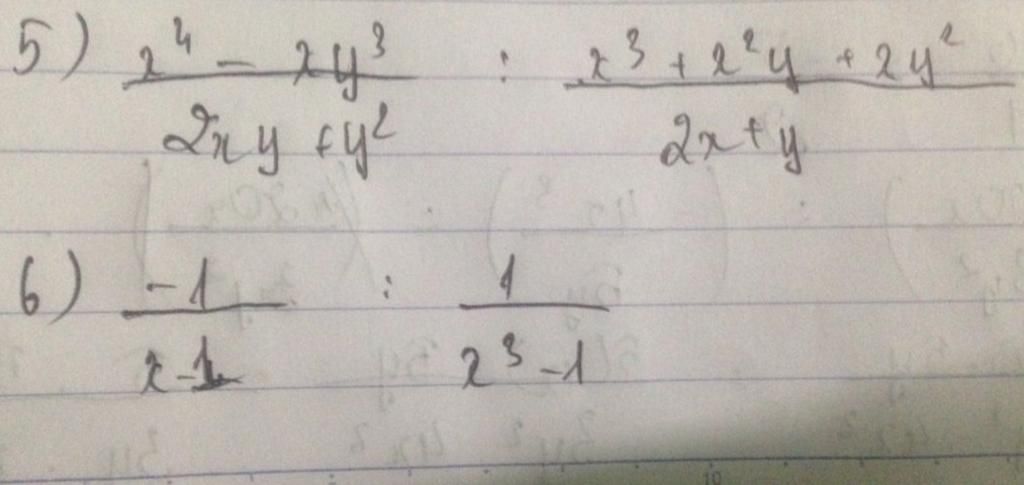 5) x⁴ - xy³ / 2xy + y² : x³ + x²y + xy² / 2x + y
6) -1 / x-1 : 1 / x³ -1
10